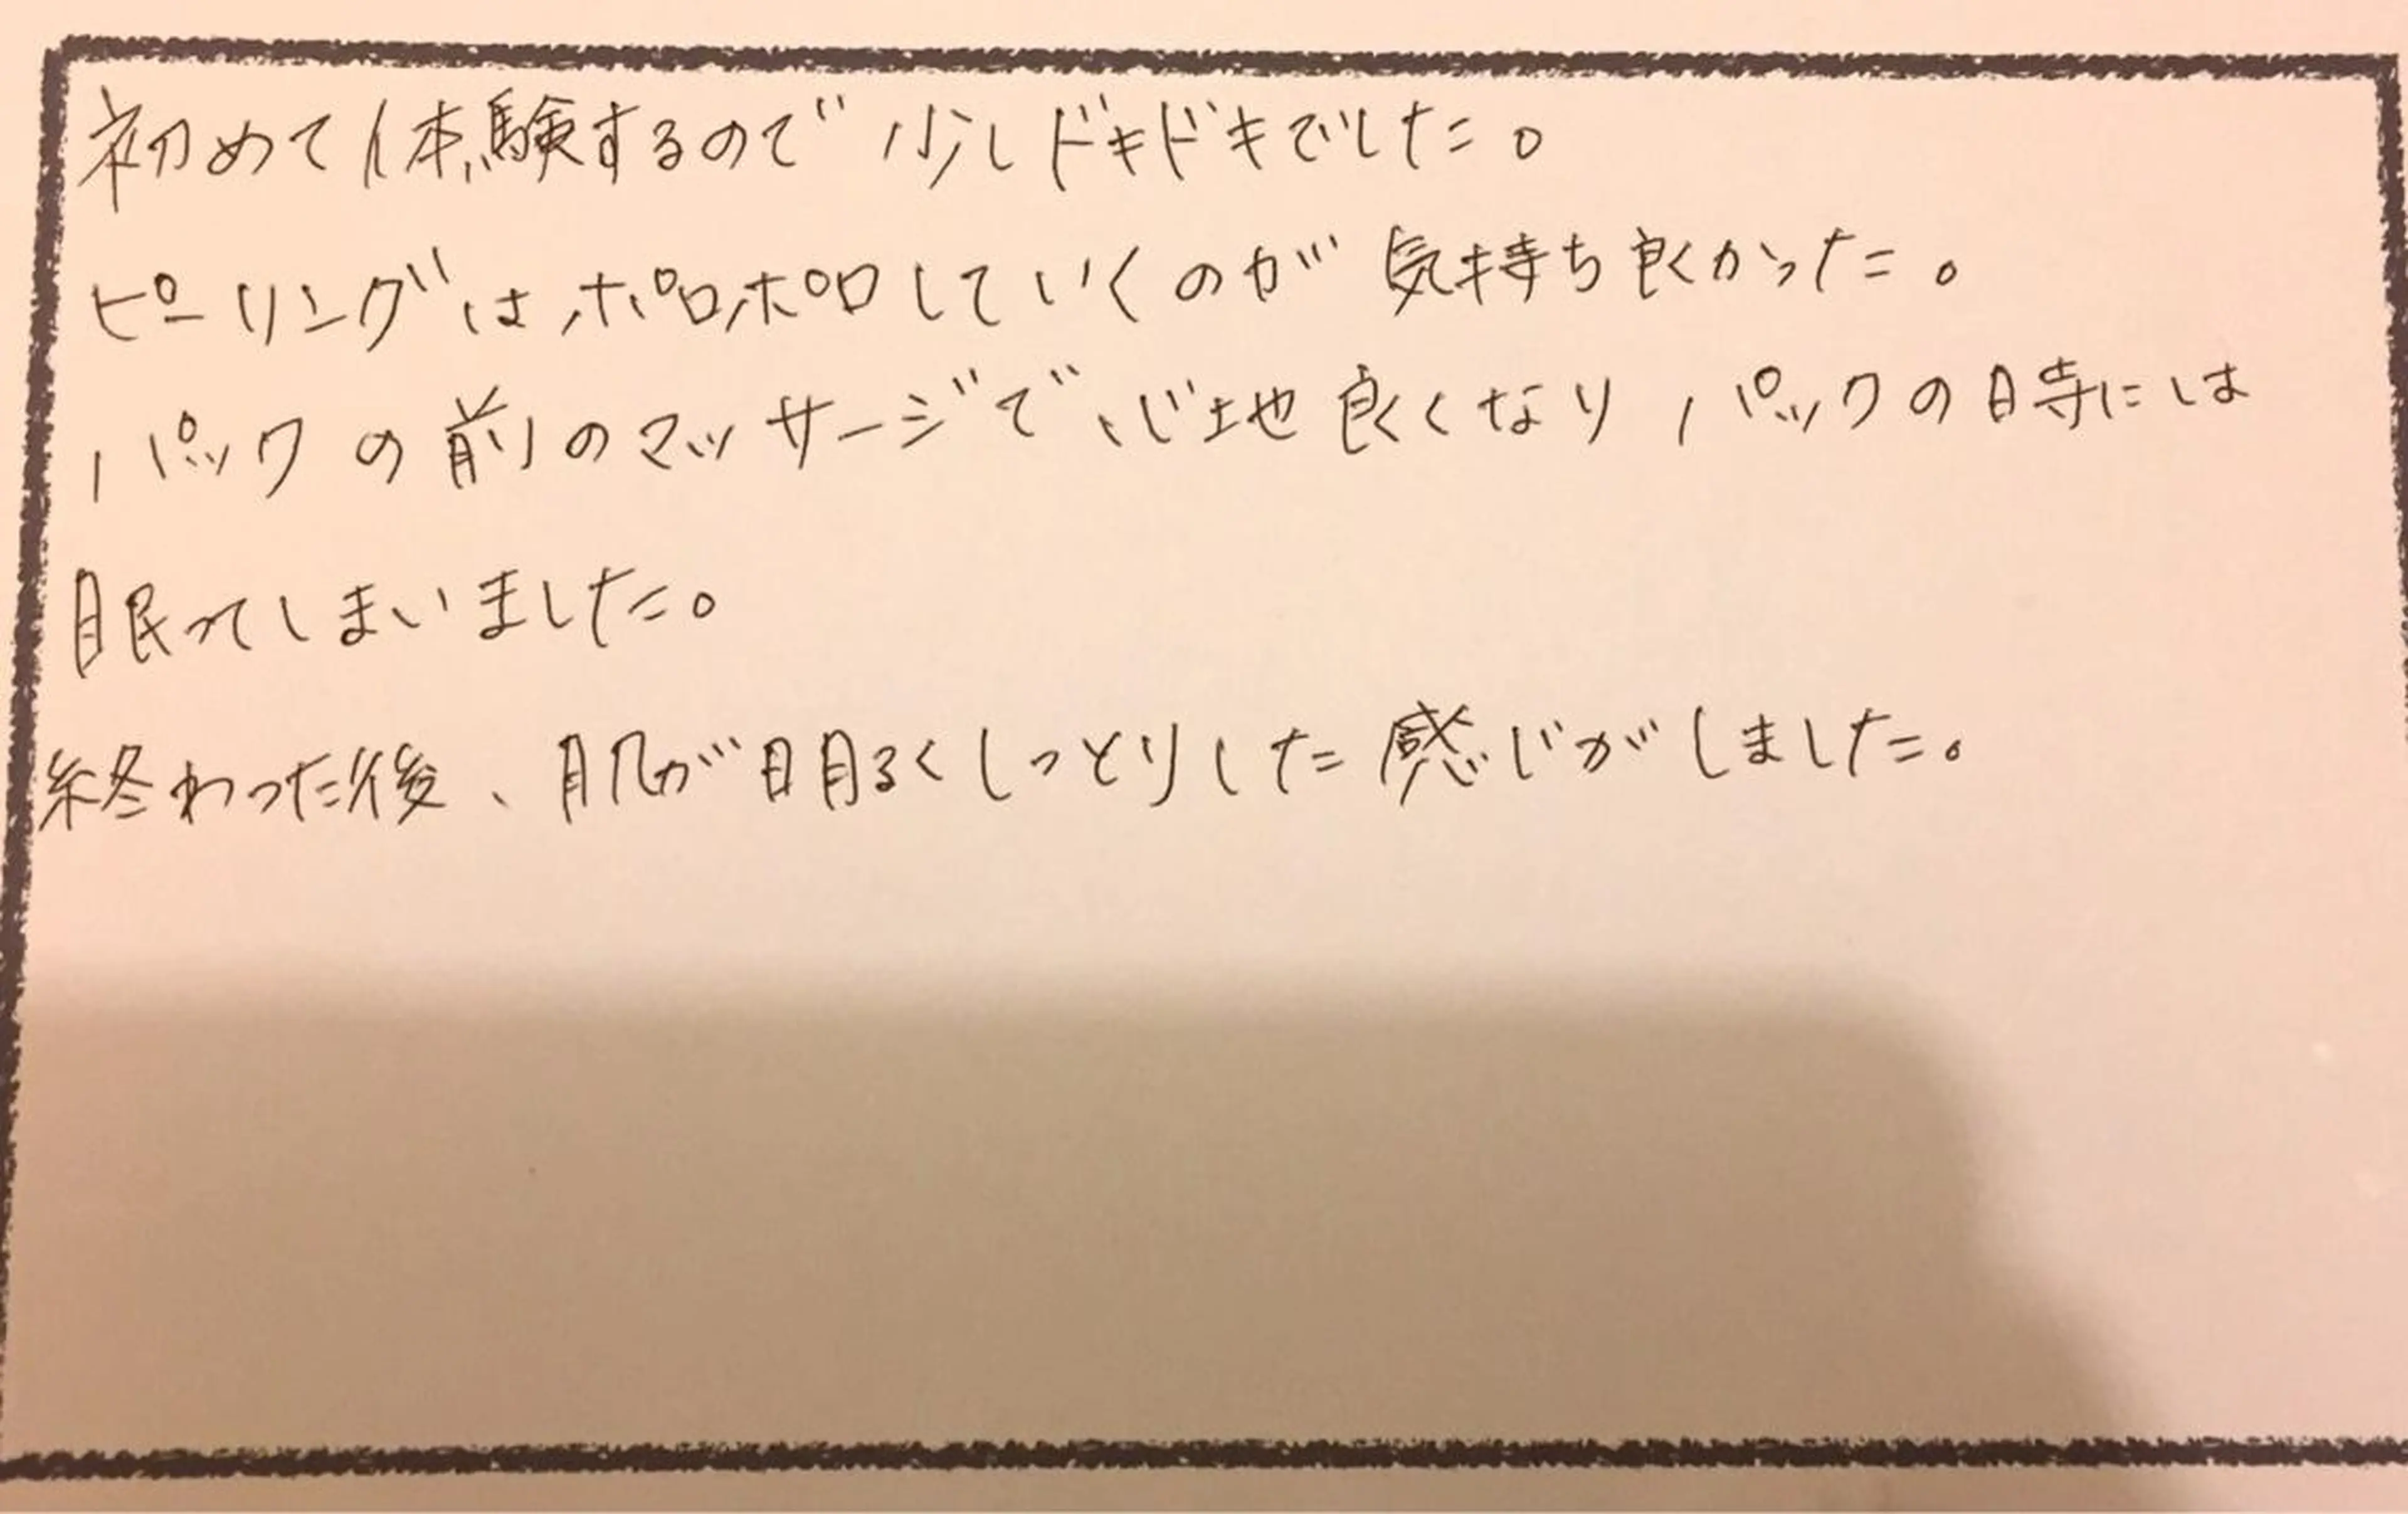 初めて体験するので少しドキドキでした。
ピーリングはポロポロしていくのが気持ち良くかった。
パックの前のマッサージで心地良くなりパックの時には
眠ってしまいました。
終わった後、肌が明るくしっとりした感じがしました。